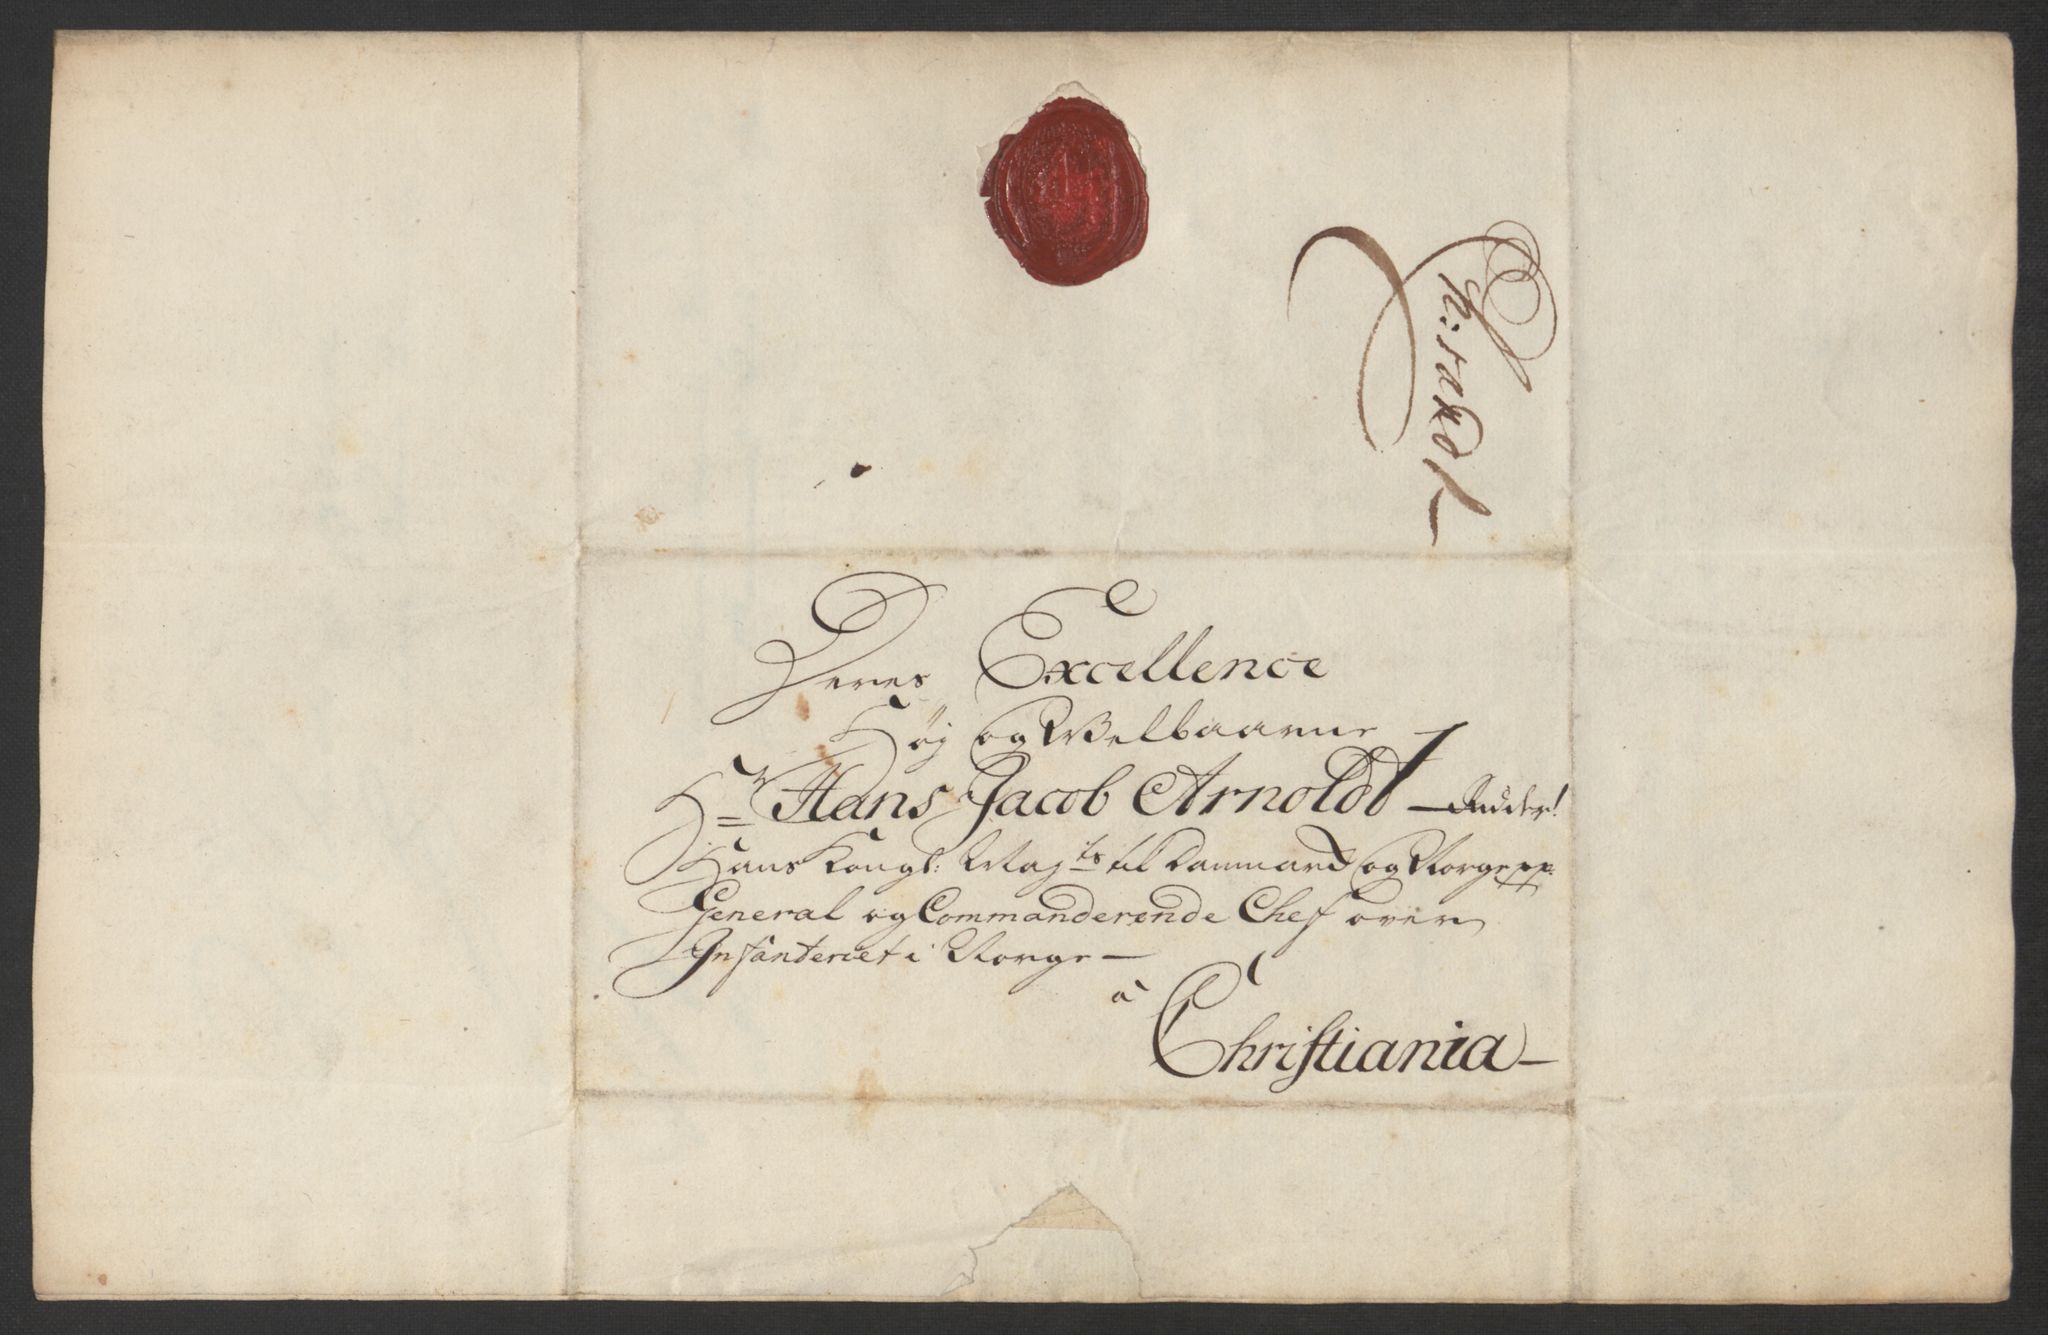 Ch:sand
Deres Excellence
Høy og Welbaarne
Hr Hans Jacob Arnoldt — Ridder!
Hans Kongl: Mayts til Danmarck og Norge pp:
General og Commanderende Chef over
Infanteriet i Norge —
a
Christiania —